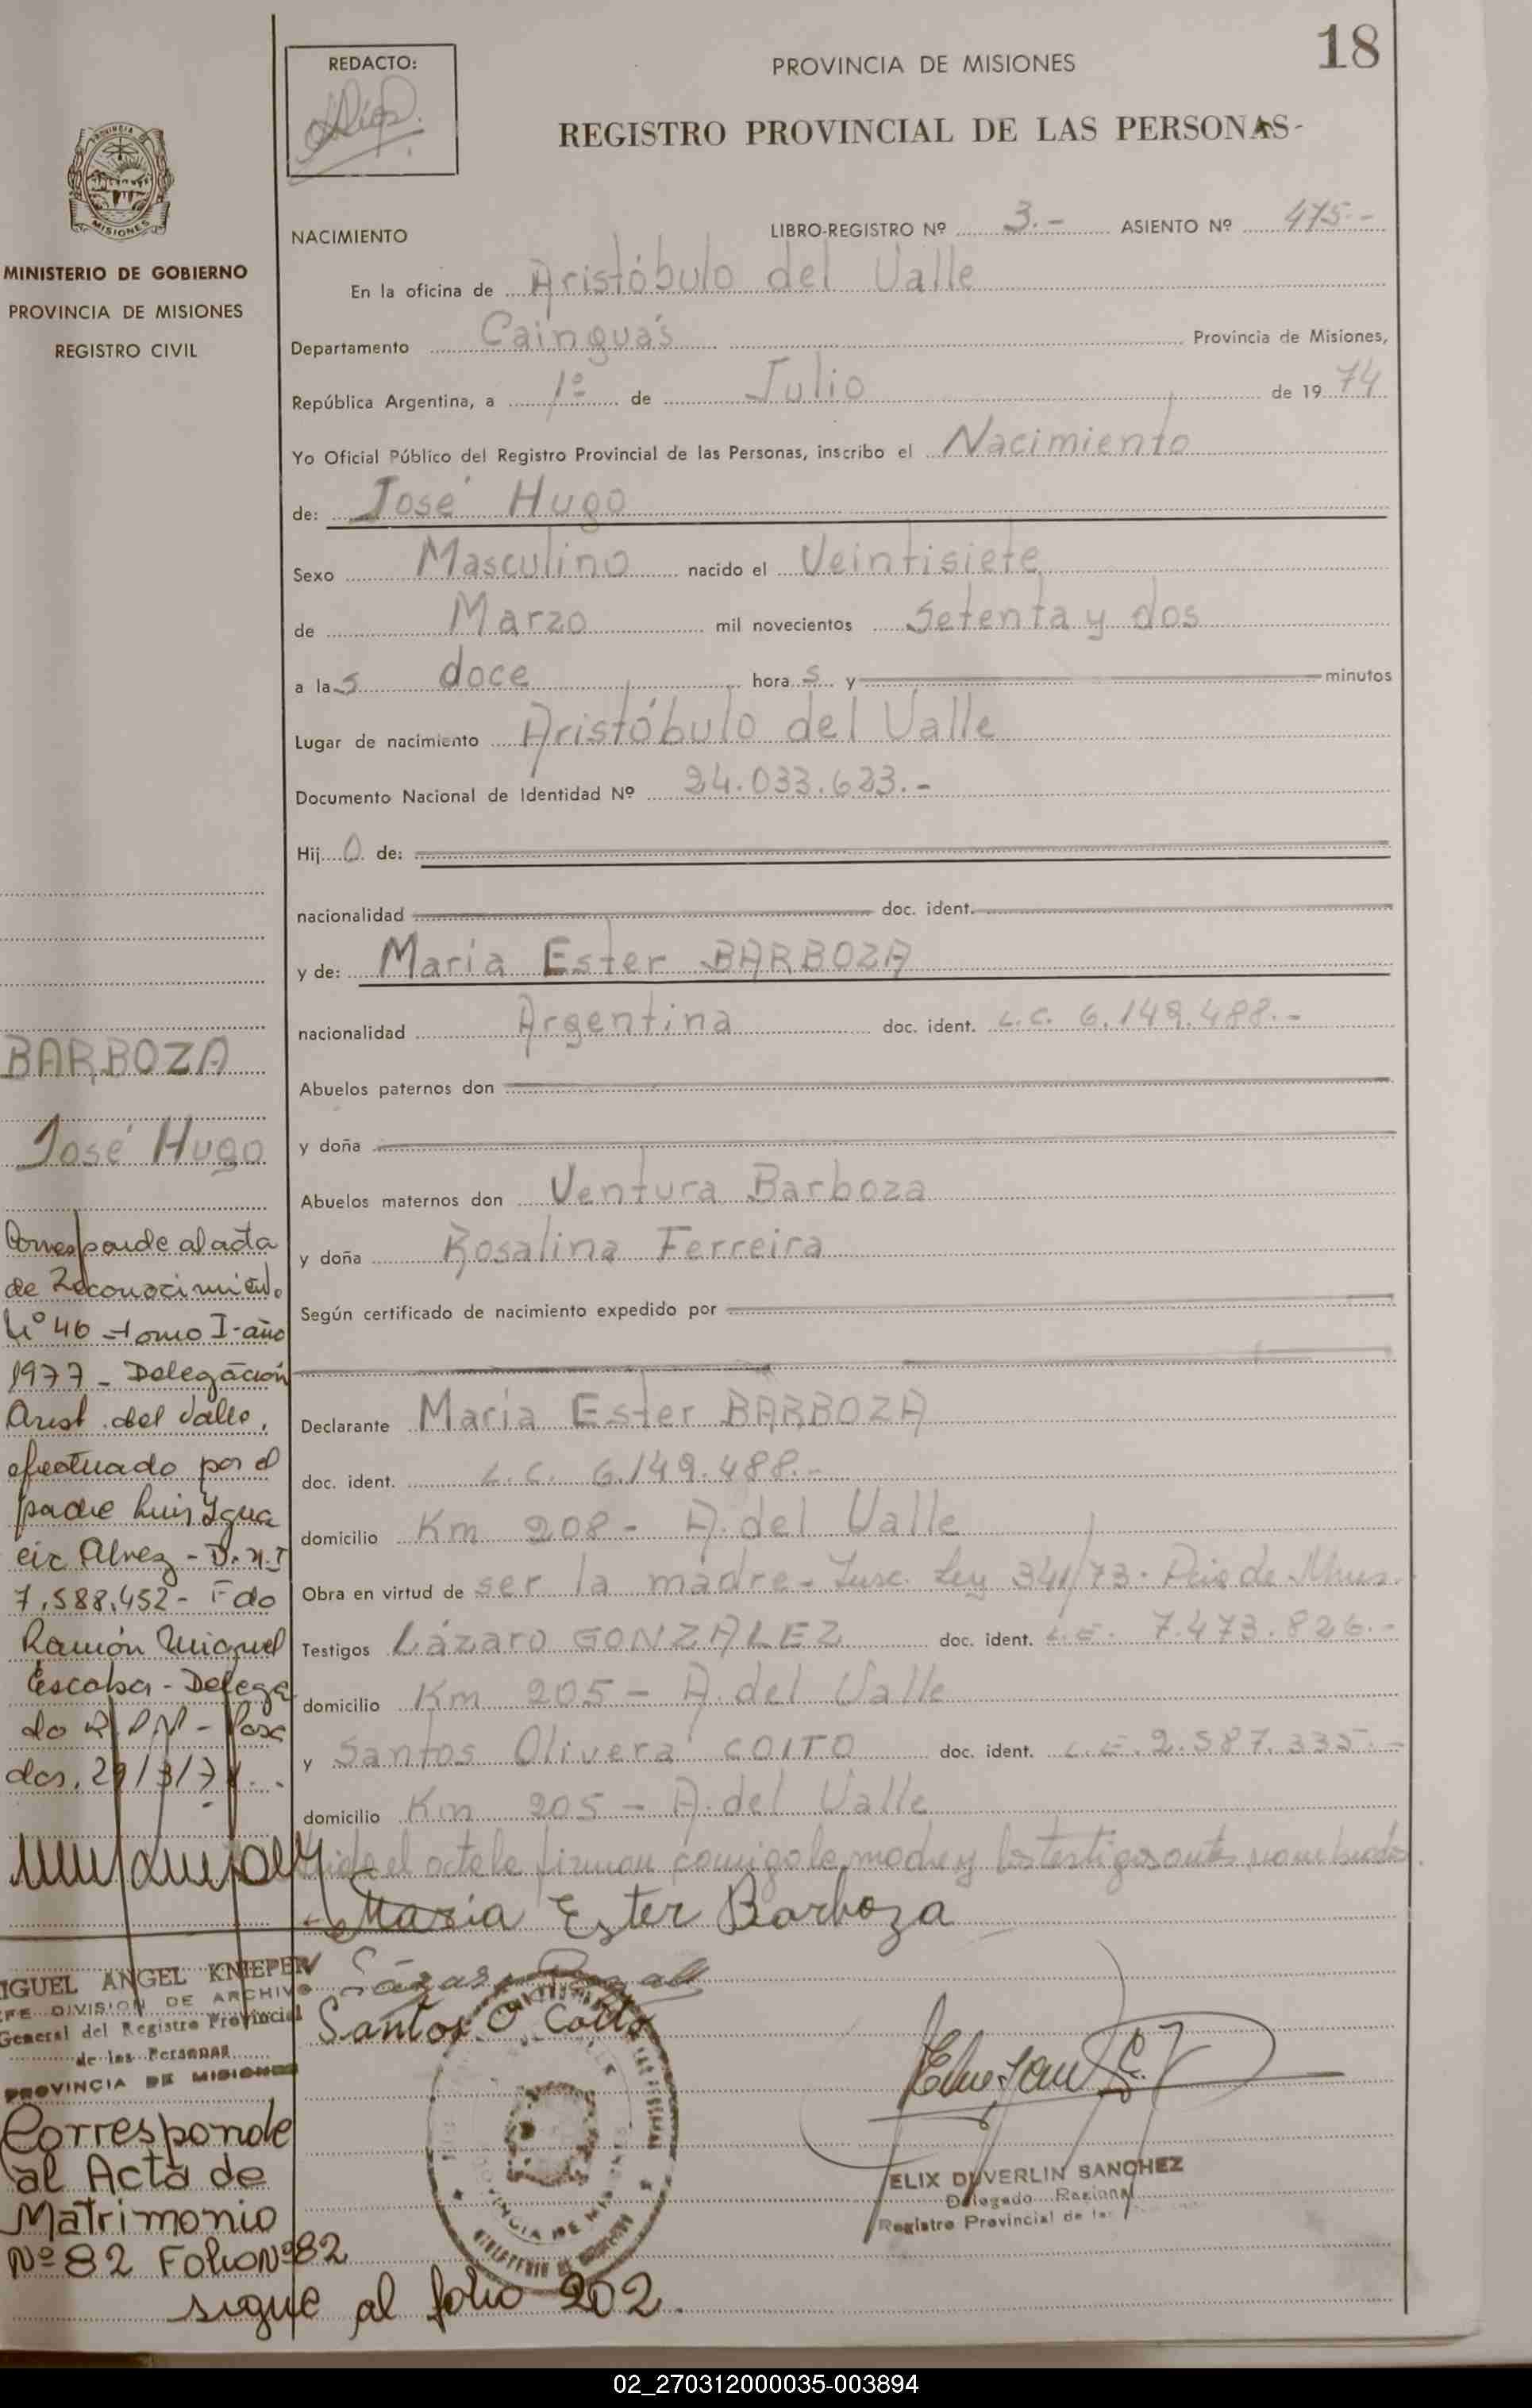 18
REDACTO:
PROVINCIA DE MISIONES
REGISTRO PROVINCIAL DE LAS PERSONAS-
PROVINCIA DE
MISIONES
MINISTERIO DE GOBIERNO
PROVINCIA DE MISIONES
REGISTRO CIVIL
NACIMIENTO
LIBRO-REGISTRO Nº 3.- ASIENTO Nº 475.-
En la oficina de Aristóbulo del Valle
Departamento Cainguás Provincia de Misiones,
República Argentina, a 1º de Julio de 19 74
Yo Oficial Público del Registro Provincial de las Personas, inscribo el Nacimiento
de: José Hugo
Sexo Masculino nacido el Veintisiete
de Marzo mil novecientos Setenta y dos
a las doce horas y minutos
Lugar de nacimiento Aristóbulo del Valle
Documento Nacional de Identidad Nº 24.033.623.-
Hijo de:
nacionalidad doc. ident.
y de: María Ester BARBOZA
nacionalidad Argentina doc. ident. L.C. 6.149.488.-
Abuelos paternos don
y doña
Abuelos maternos don Ventura Barboza
y doña Rosalina Ferreira
Según certificado de nacimiento expedido por
Declarante María Ester BARBOZA
doc. ident. L.C. 6.149.488.-
domicilio Km 208 - A. del Valle
Obra en virtud de ser la madre - Insc. Ley 341/73.
Testigos Lázaro GONZALEZ doc. ident. L.E. 7.473.826.-
domicilio Km 205 - A. del Valle
y Santos Olivera COITO doc. ident. L.E. 2.587.335.-
domicilio Km 205 - A. del Valle
el acta la firman conmigo la madre y los testigos antes nombrados.
María Ester Barboza
Santos O Coito
ELIX DUVERLIN SANCHEZ
Delegado Regional
Registro Provincial de las
BARBOZA
José Hugo
Corresponde al acta
de Reconocimient.
Nº 46 - tomo I - año
1977 - Delegación
Arist. del Valle,
efectuado por el
padre Luis Ygna
cio Alvez - D.N.I
7.588.452 - Fdo
Ramón Miguel
Escobar - Delega
do R.P.P. - Posa
das, 29/3/7
IGUEL ANGEL KNIEPER
EFE DIVISION DE ARCHIVO
General del Registro Provincial
de las Personas
PROVINCIA DE MISIONES
Corresponde
al Acta de
Matrimonio
Nº 82 Folio Nº 82
sigue al folio 202.
02_270312000035-003894